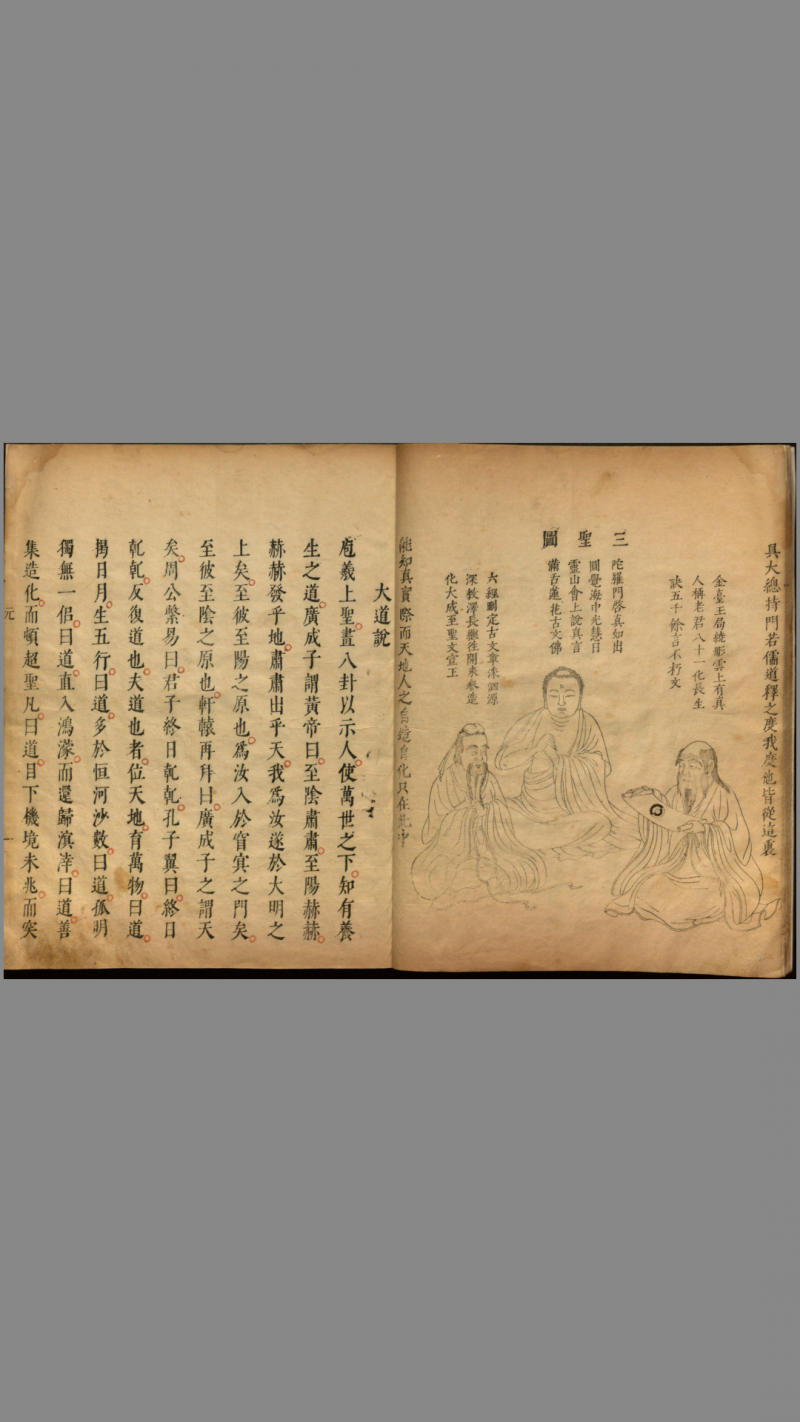 具大總持門若儒道釋之度我度他皆從這裏
三聖圖
金臺玉局繞彤雲上有真
人稱老君八十一化長生
訣五千餘言不朽文
陀羅門啓真如出
圓覺海中光慧日
靈山會上說真言
滿舌蓮花古文佛
六經刪定古文章洙泗源
深教澤長繼往開來參造
化大成至聖文宣王
能知真實際而天地人之自造自化只在此中
大道說
庖羲上聖畫八卦以示人使萬世之下知有養
生之道廣成子謂黃帝曰至陰肅肅至陽赫赫
赫赫發乎地肅肅出乎天我爲汝遂於大明之
上矣至彼至陽之原也爲汝入於窅冥之門矣
至彼至陰之原也軒轅再拜曰廣成子之謂天
矣周公繫易曰君子終日乹乹孔子翼曰終日
乹乹反復道也夫道也者位天地育萬物曰道
揭日月生五行曰道多於恒河沙數曰道孤明
獨無一侶曰道直入鴻濛而還歸溟涬曰道善
集造化而頓超聖凡曰道目下機境未兆而突
元
一